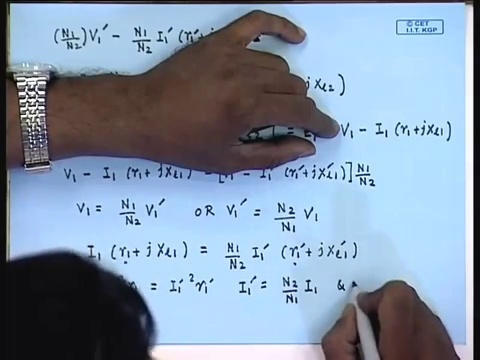 © CET
I.I.T. KGP
(N1/N2) V1′ − N1/N2 I1′ (r1′+j
j Xℓ2)
= V1 − I1 (r1 + jXℓ1)
V1 − I1 (r1 + jXℓ1) − I1′ (r1′ + jXℓ1′)] N1/N2
V1 = N1/N2 V1′ OR V1′ = N2/N1 V1
I1 (r1 + jXℓ1) = N1/N2 I1′ (r1′ + jXℓ1′)
= I1′² r1′ I1′ = N2/N1 I1 &